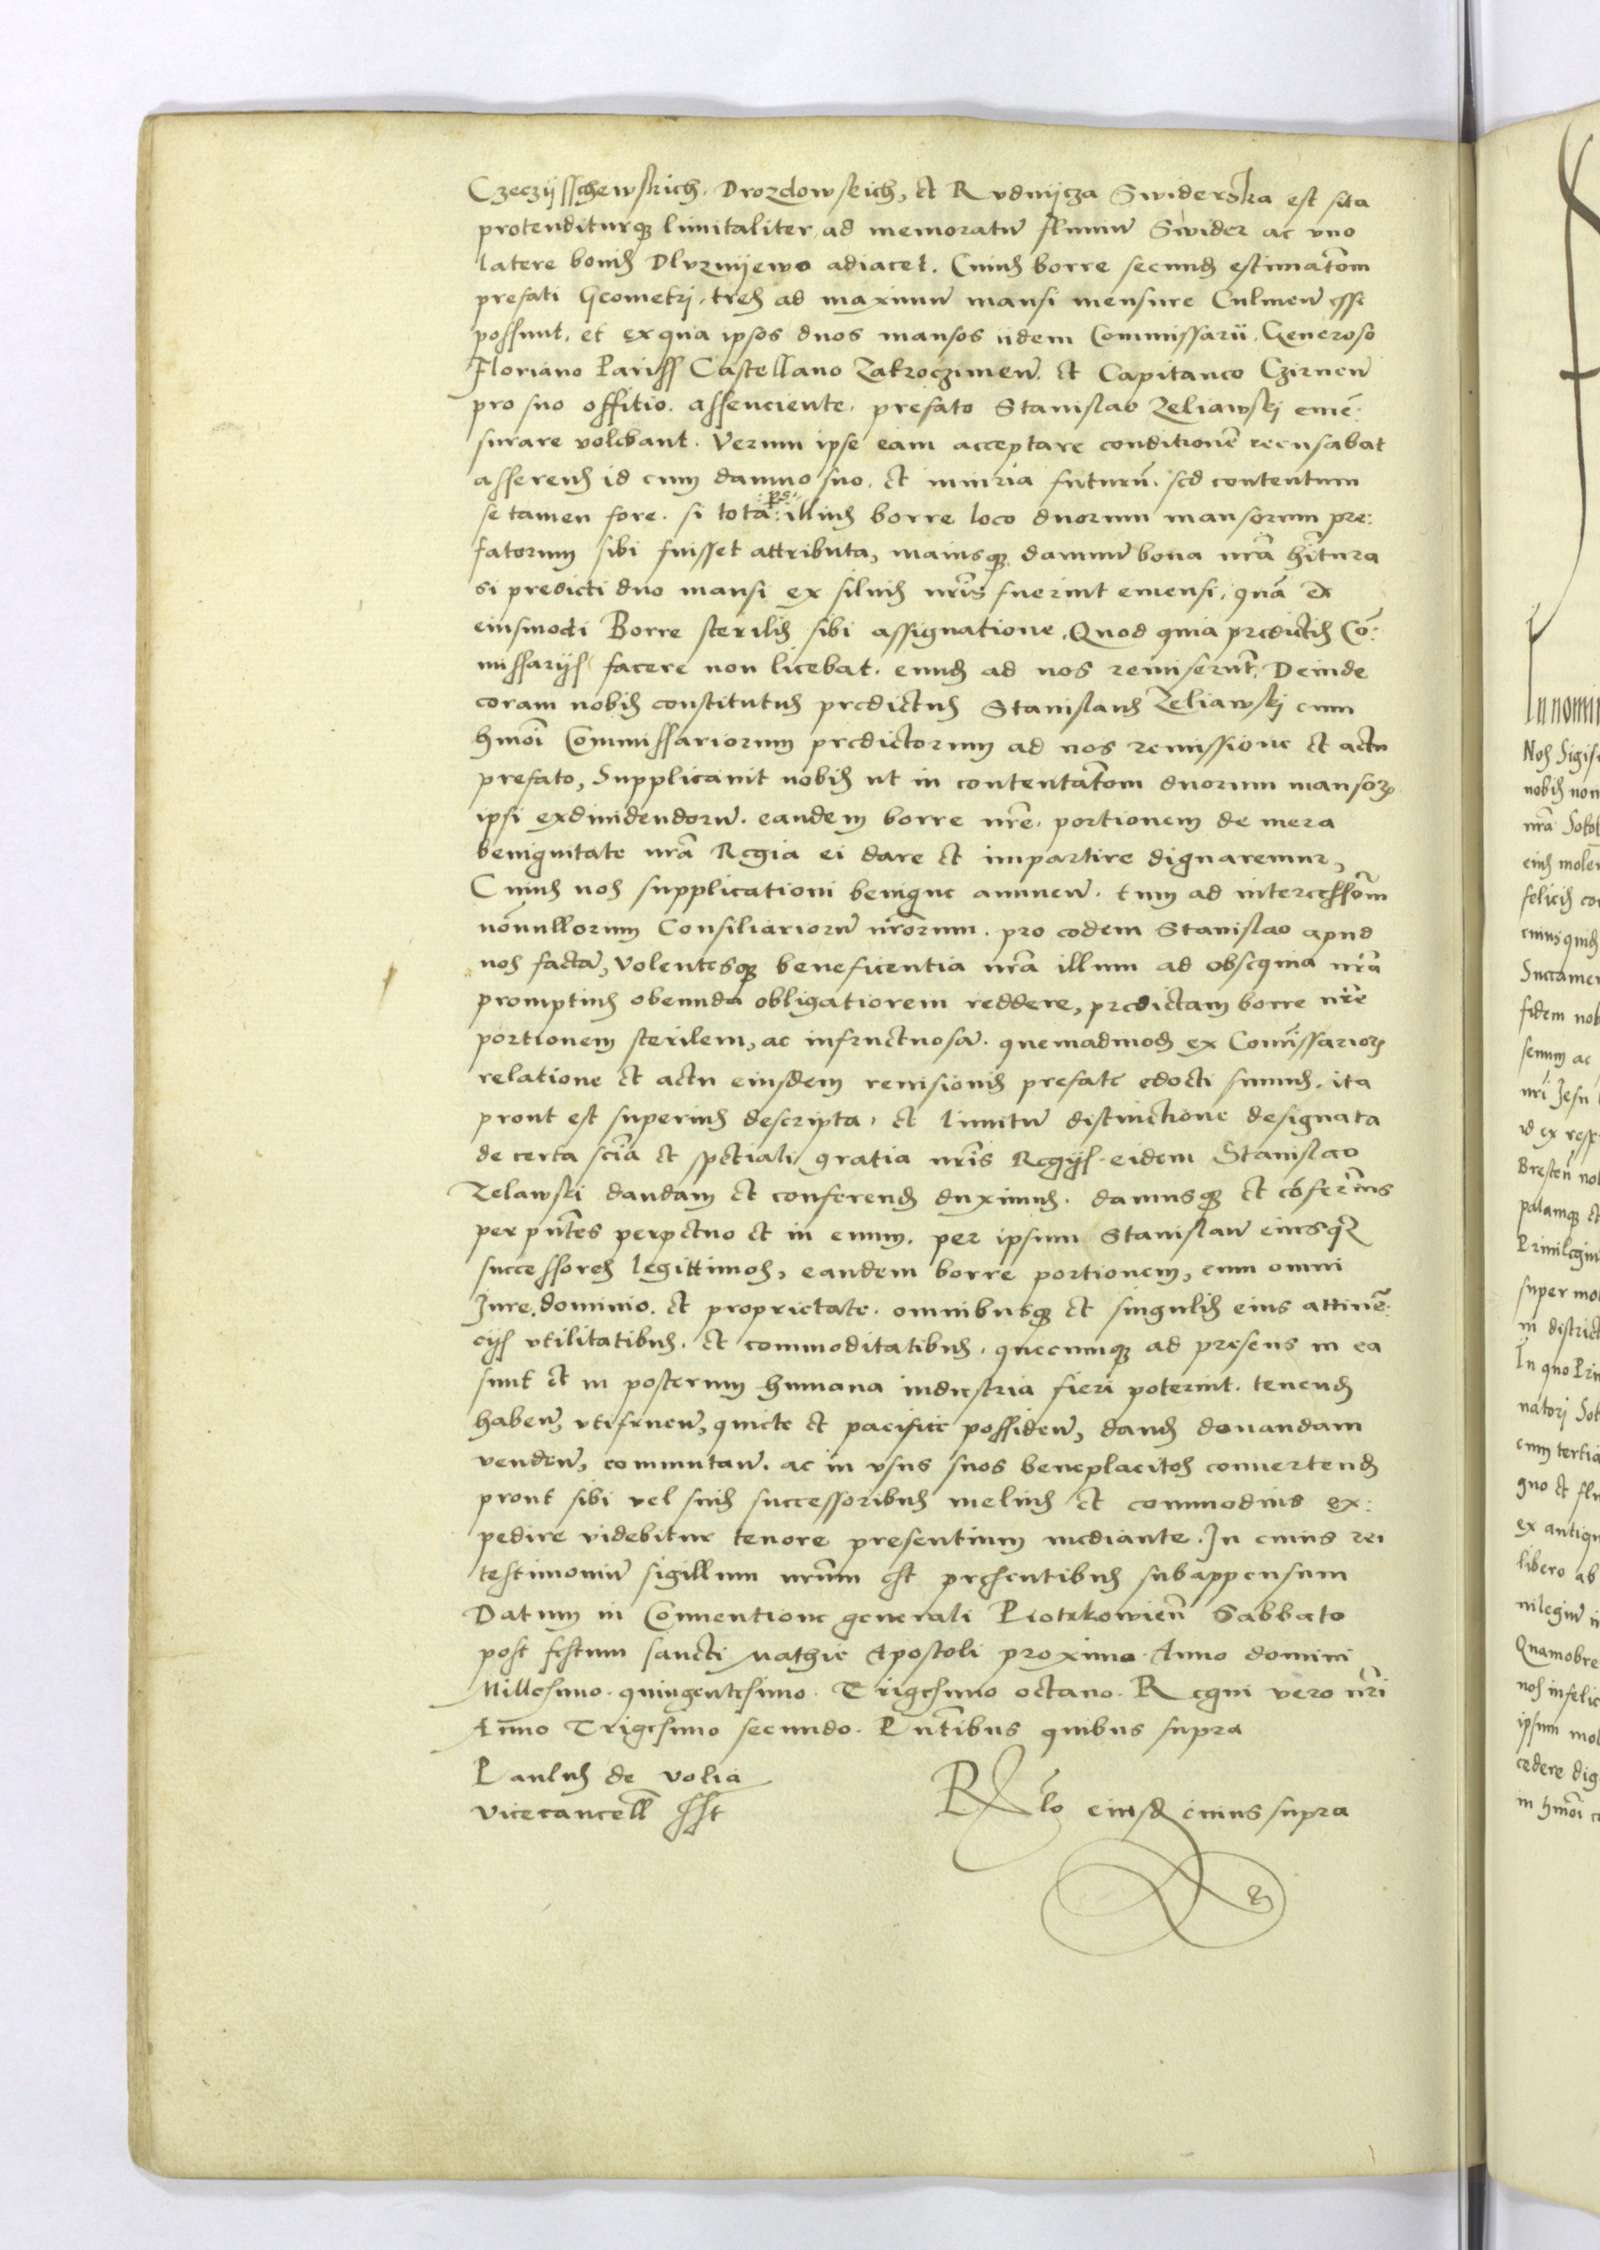 Czeczijsschewskich. Drozdowskich, et Rvdnijcza Swiderska est sita
protenditurq₃ limitaliter ad memoratū fluuiū Swider ac vno
latere bonis Dlvznijewo adiacet. Cuius borre secund estimatōm
prefati Geometrj, tres ad maximū mansi mensure Culmeñ esse
possunt, et ex qua ipsos duos mansos iidem Commissarii. Generoso
Floriano Pariss Castellano Zakroczimeñ. et Capitaneo Czirneñ
pro suo offitio. assenciente. prefato Stanislao Zeliawskj emē:
surare volebant. Verum ipse eam acceptare conditionē recusabat
asserens id cum damno suo. et iniuria futurū. sed contentum
se tamen fore. si tota :ps: illius borre loco duorum mansorum pre:
fatorum sibi fuisset attributa, maiusq₃ damnū bona nrā hītura
si predicti duo mansi ex siluis nrīs fuerint emensi, quā ex
eiusmodi Borre sterilis sibi assignatione. Quod quia predictis Cō:
missarijs facere non licebat. eund ad nos remiserūt. Deinde
coram nobis constitutus predictus Stanislaus Zeliawskj cum
hmōi Commissariorum predictorum ad nos remissione et actu
prefato, Supplicauit nobis ut in contentatōm duorum mansoꝝ
ipsi exdiuidendorū. eandem borre nrē. portionem de mera
benignitate nrā Regia ei dare et impartire dignaremur,
Cuius nos supplicationi benigne annueñ. tum ad intercessiōm
nōnullorum Consiliariorū nrōrum. pro eodem Stanislao apud
nos factā, Volentesq₃ beneficentia nrā illum ad obsequia nrā
promptius obeunda obligatiorem reddere, predictam borre nrē
portionem sterilem, ac infructuosā. quemadmod ex Comīssarioꝝ
relatione et actu eiusdem reuisionis prefate edocti sumus. ita
prout est superius descripta, et limitū distinctione designata
de certa sciā et spetiali gratia nrīs Regijs. eidem Stanislao
Zelawski dandam et conferend duximus. damusq₃ et cōferimus
per pntes perpetuo et in euum. per ipsum Stanislaū eiusq₃
successores legittimos, eandem borre portionem, cum omni
Jure. dominio. et proprietate. omnibusq₃ et singulis eius attinē:
cijs vtilitatibus. et commoditatibus. quecumq₃ ad presens in ea
sunt et in posterum humana industria fieri poterint. tenend
habeñ, vtifrueñ, quiete et pacifice possideñ, dand donandam
vendeñ, commutañ. ac in vsus suos beneplacitos conuertend
prout sibi vel suis successoribus melius et commodius ex:
pedire videbitur tenore presentium mediante. In cuius rei
testimoniū sigillum nrūm est presentibus subappensum
Datum in Conuentione generali Piotrkowieñ Sabbato
post festum sancti Mathie Apostoli proximo. Anno domini
Millesimo. quingentesimo. Trigesimo octauo. Regni vero nrī
Anno Trigesimo secundo. Pntibus quibus supra
Paulus de Volia
Vicecancell sst
Rlo eiusd cuius supra
In nomin
Nos Sigis
nobis non
nrā Sokol
eius molen
felicis co
cuiusquid
Succamer
fidem nob
senum ac
nrī Jesu
id ex resp
Bresteñ no
palamq₃ et
Priuilegiu
super mo
in district
In quo Priu
natorj Sok
cum tertia
quo et flu
ex antiqu
libero ab
uilegiū i
Quamobre
nos infelic
ipsum mol
cedere dig
in hmōi c